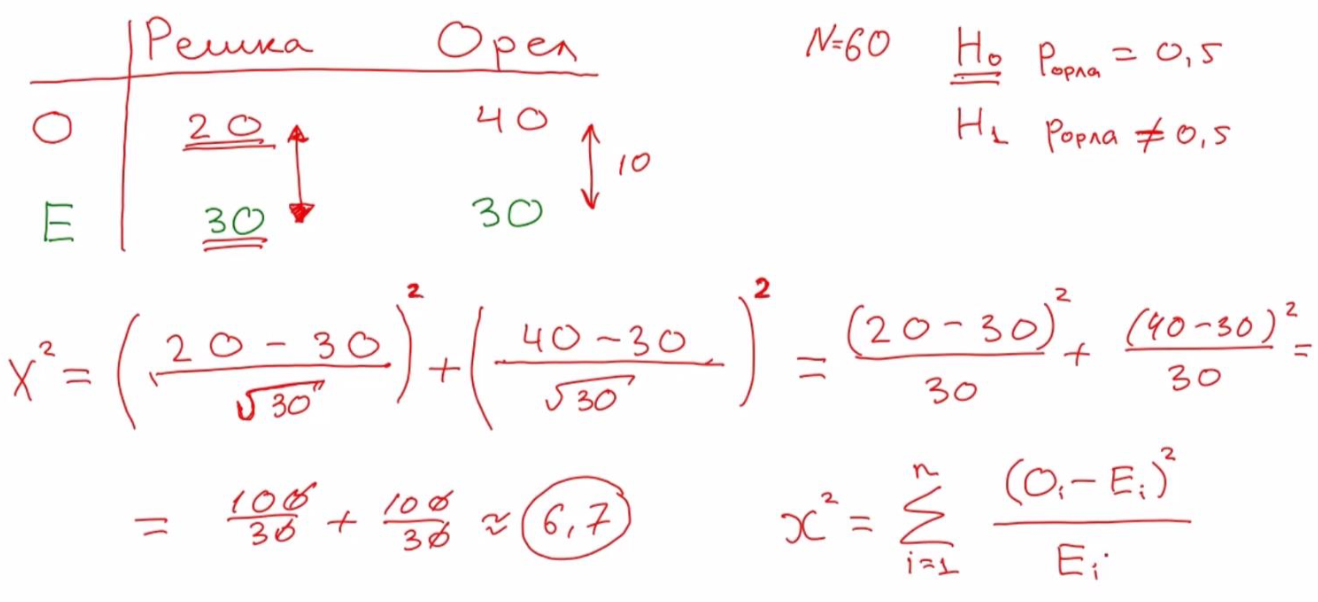 Решка Орел
O 20 40
10
E 30 30
N=60 H₀ Pорла = 0,5
H₁ Pорла ≠ 0,5
X² = ((20 - 30)/√30)² + ((40 - 30)/√30)² = (20 - 30)²/30 + (40 - 30)²/30 =
= 100/30 + 100/30 ≈ 6,7
x² = ∑ⁿᵢ₌₁ (Oᵢ - Eᵢ)²/Eᵢ